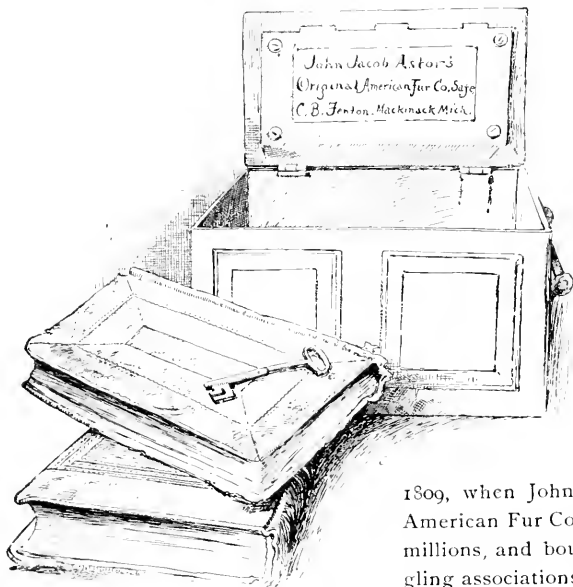 John Jacob Astor's
Original American Fur Co. Safe
C. B. Fenton. Mackinack Mich.
1809, when John
American Fur Co
millions, and bou
gling association